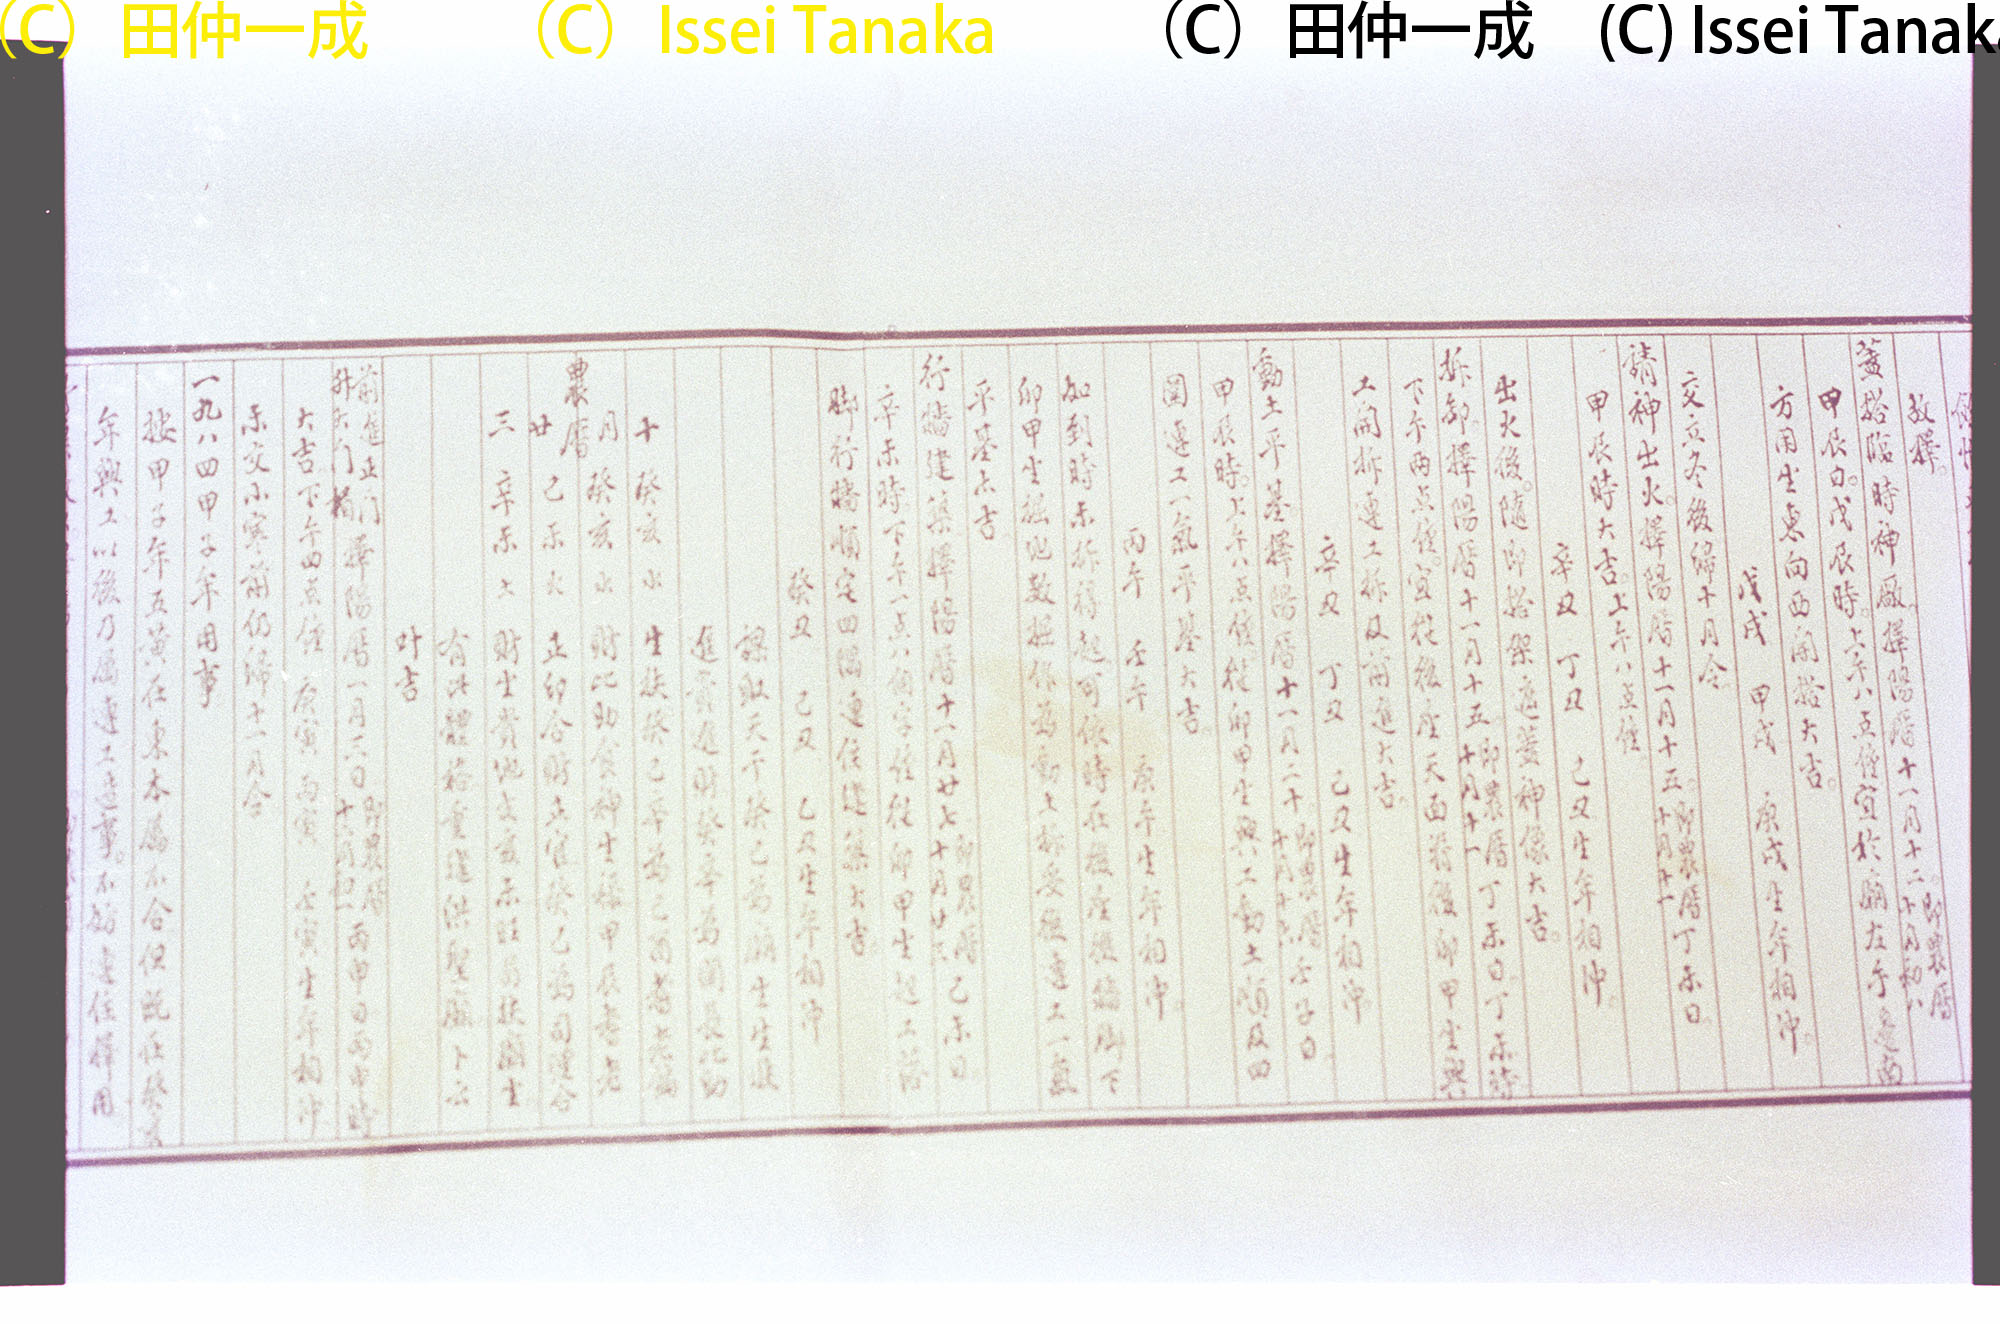 (C) 田仲一成 (C) Issei Tanaka (C) 田仲一成 (C) Issei Tanaka
故擇。
蓋搭臨時神廠。擇陽曆十一月十二。即農曆十月初八
甲辰日。戊辰時。上午八点鐘宜於廟左手是南
方用坐東向西開搭大吉。
戊戌 甲戌 庚戌生年相沖。
交立冬後歸十月令
請神出火。擇陽曆十一月十五。即農曆十月十一丁未日。
甲辰時大吉。上午八点鐘
辛丑 丁丑 己丑生年相沖。
出火後。隨即搭架遮蓋神像大吉。
拆卸。擇陽曆十一月十五。即農曆十月十一丁未日。丁未時
下午兩点鐘。宜從後座天面将後卯甲生興
工開拆連工拆及前進大吉。
辛丑 丁丑 己丑生年相沖
動土平基擇陽曆十一月二十。即農曆十月十六壬子日。
甲辰時。上午八点鐘從卯甲生興工動土順及四
圍連工一氣平基大吉。
丙午 壬午 庚午生年相沖。
如到時未拆得起可依時在後座後牆脚下
卯甲生掘地数掘作為動土拆妥後連工一氣
平基亦吉。
行牆建築擇陽曆十一月廿七即農曆十月廿三己未日。
辛未時。下午一点八個字鐘從卯甲生起工落
脚行牆順定四隅連任建築大吉。
癸丑 己丑 乙丑生年相沖
課取天干癸己為 生生旺
進貴進財癸辛為
十 癸亥水 生扶癸己平為己酉者
月 癸亥水 財比助食神生祿甲辰者
農曆廿 己未火 正卯合財正官癸己為司理合
三 辛未土 財生貴地支亥未旺局扶
有此體格重進供聖 卜云
叶吉
前進正门升大门楣擇陽曆一月三日即農曆十二月初一丙申日丙申時
大吉下午四点鐘 庚寅 丙寅 壬寅生年相沖
未交小寒前仍歸十一月令
一九八四甲子年用事
按甲子年五黄在東本屬不合但既在癸亥
年興工以後乃属連工造事。不妨連任擇用